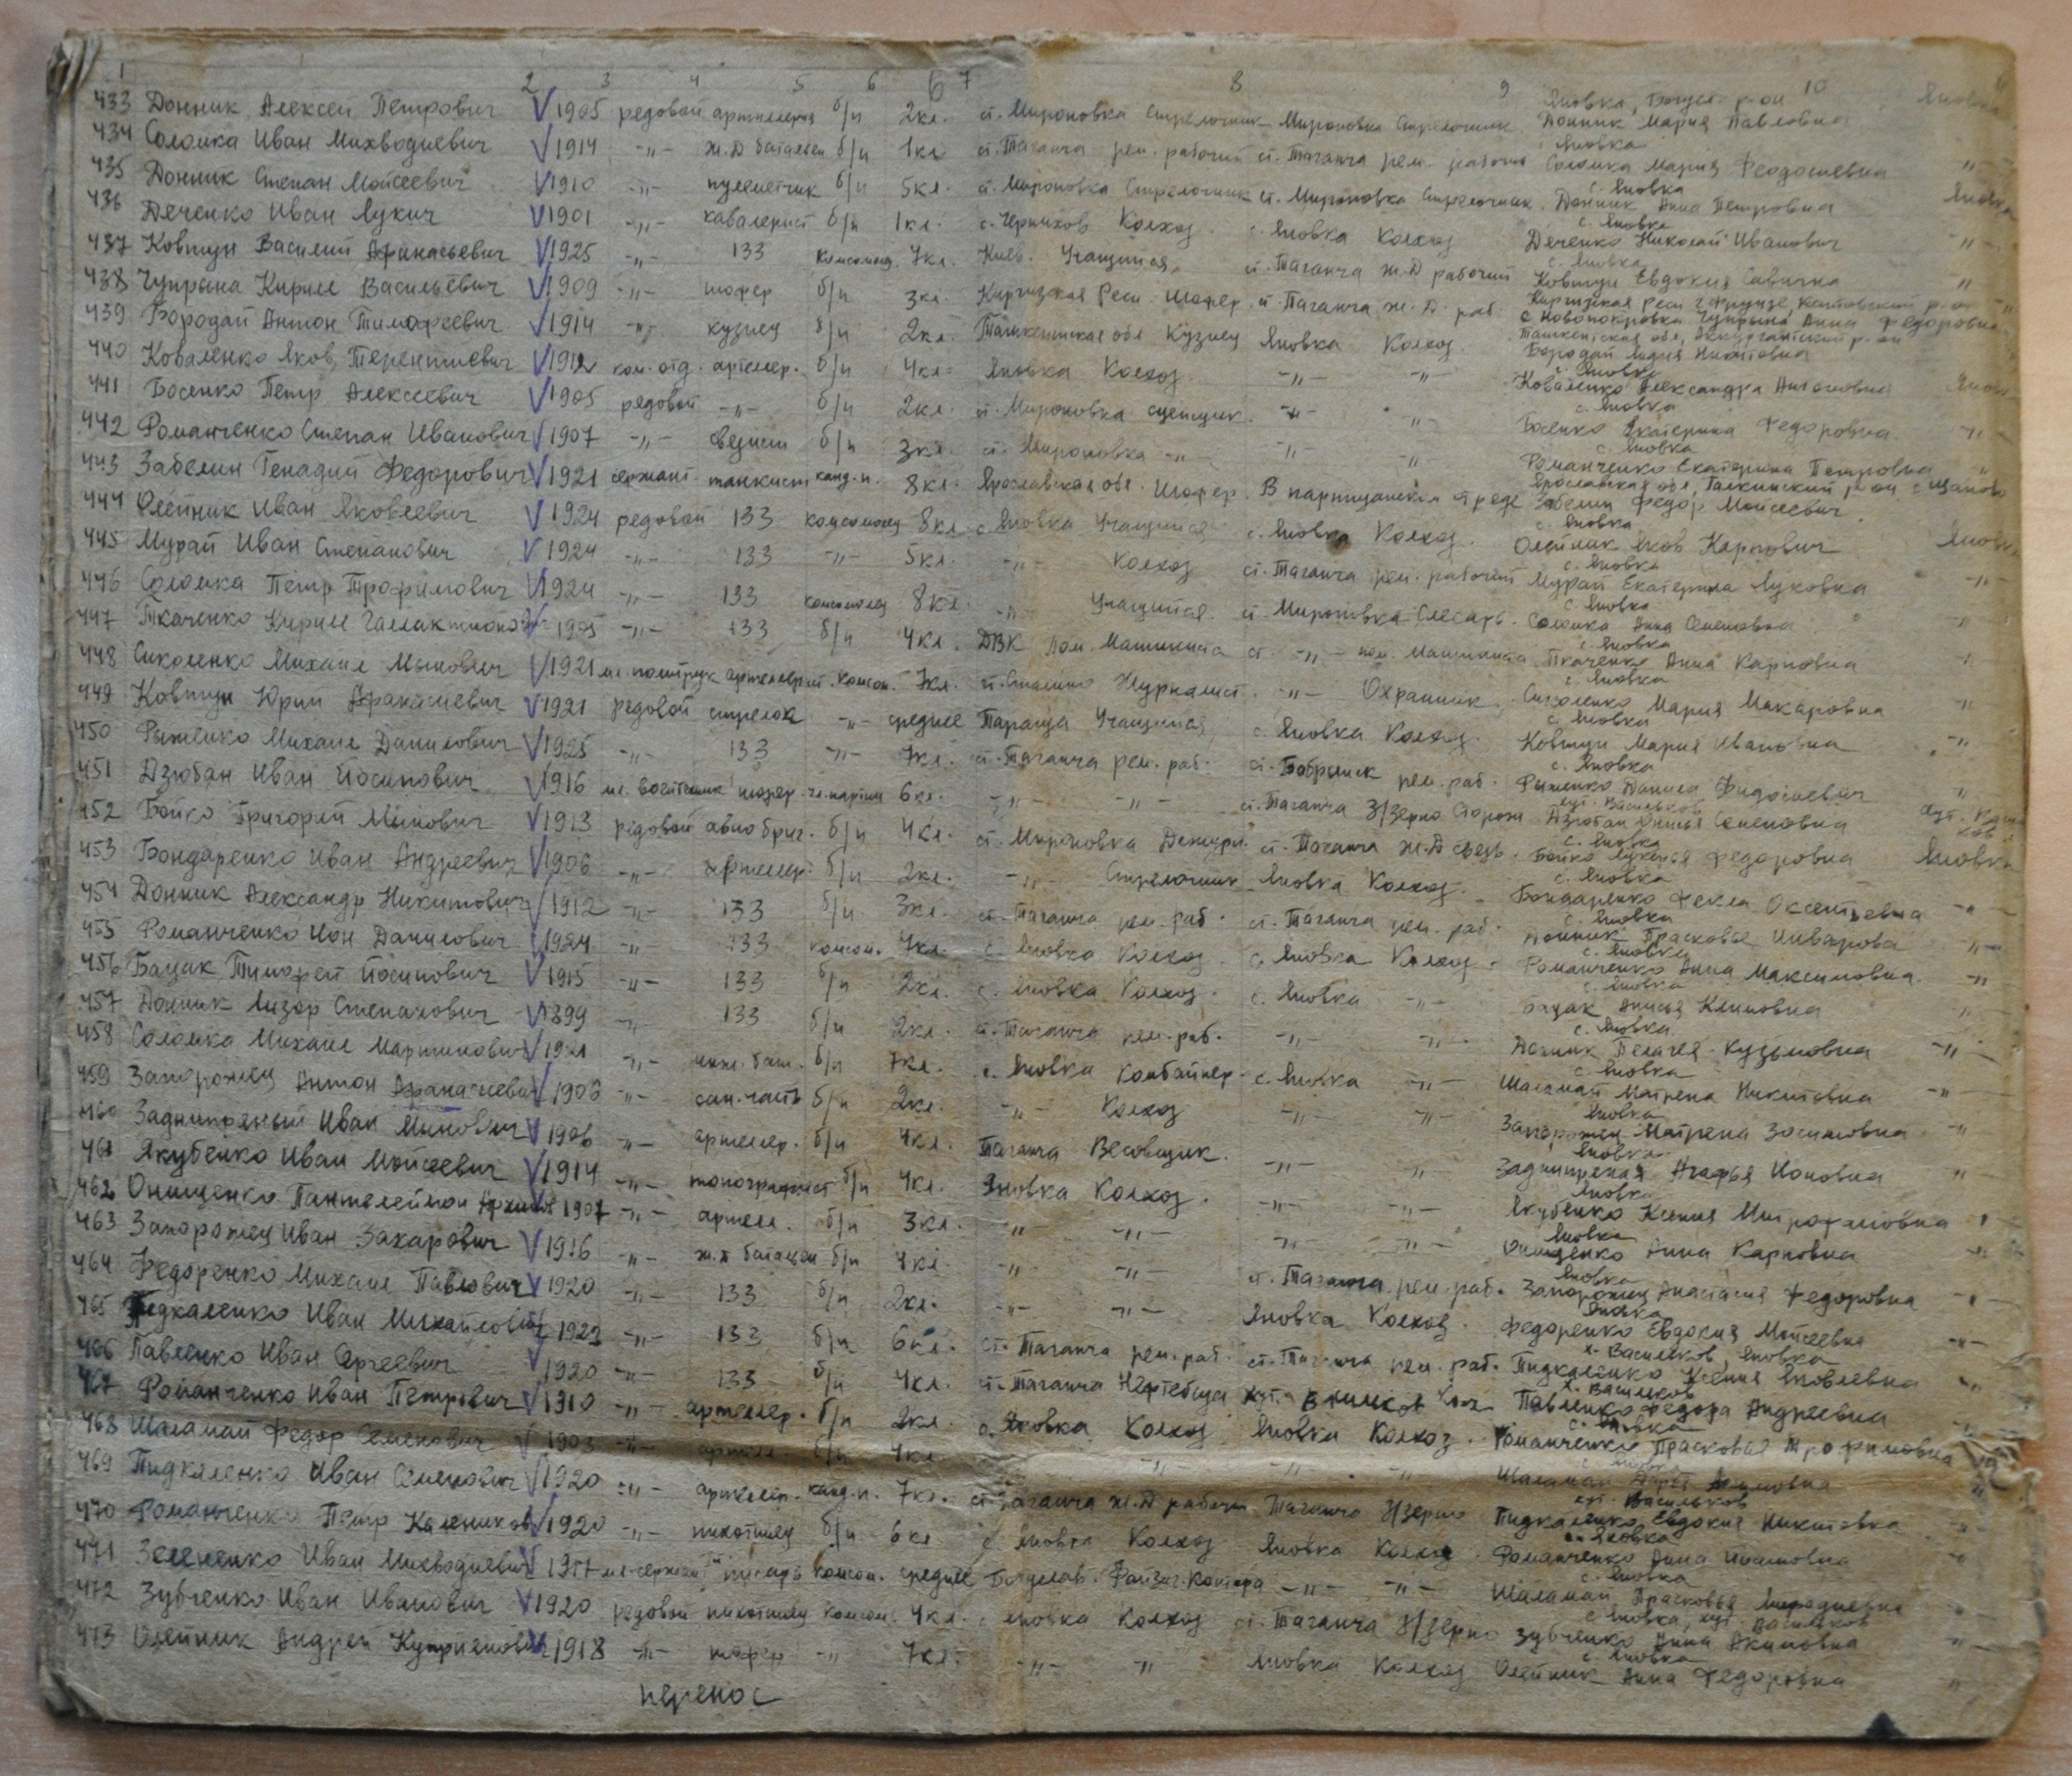 1 2 3 4 5 6 7 8 9 10
433 Донник Алексей Петрович V 1905 редовой артилерия б/п 2кл. ст. Мироновка Стрелочник Мироновка Стрелочник Яновка, Богусл. р-он Донник Мария Павловна Яновка
434 Соломка Иван Михводиевич V 1914 -"- ж.д батальен б/п 1кл ст. Таганча рем. рабочий ст. Таганча рем. рабочий Яновка Соломка Мария Феодосиевна "
435 Донник Степан Мойсеевич V 1910 -"- пулеметчик б/п 5кл. ст. Мироновка Стрелочник ст. Мироновка Стрелочник с. Яновка Донник Анна Петровна Яновка
436 Деченко Иван Лукич V 1901 -"- кавалерист б/п 1кл. с. Черняхов Колхоз. с. Яновка Колхоз с. Яновка Деченко Николай Иванович -"-
437 Ковтун Василий Афанасьевич V 1925 -"- 133 комсомол. 7кл. Киев. Учащийся, ст. Таганча ж.Д рабочий с. Яновка Ковтун Евдокия Савична "
438 Чупрына Кирилл Васильевич V 1909 -"- шофер б/п 3кл. Киргизская Респ. Шофер. ст. Таганча ж. Д. раб. Киргизкая респ г. Фрунзе, р-он с Новопокровка Чупрына Анна Федоровна
439 Бородай Антон Тимофеевич V 1914 -"- кузнец б/п 2кл. Ташкентская обл Кузнец Яновка Колхоз. Ташкентская обл, р-он Бородай Лидия Никитовна
440 Коваленко Яков, Терентиевич V 1912 ком. отд. артелер. б/п 4кл. Яновка Колхоз -"- -"- с. Яновка Коваленко Александра Антоновна
441 Босенко Петр Алексеевич V 1905 редовой -"- б/п 2кл. ст. Мироновка сцепщик. -"- " с. Яновка Босенко Екатерина Федоровна. -"-
442 Романченко Степан Иванович V 1907 -"- связист б/п 3кл. ст. Мироновка -"- "- -"- с. Яновка Романченко Екатерина Петровна "
443 Забелин Генадий Федорович V 1921 сержант. танкист канд.п. 8кл. Ярославская обл. Шофер. В партизанском отряде Ярославская обл, р-он Забелин Федор Мойсеевич
444 Олейник Иван Яковлевич V 1924 редовой 133 комсомолец 8кл. с. Яновка Учащийся с. Яновка Колхоз. с. Яновка Олейник Яков Карпович Яновка
445 Мурай Иван Степанович V 1924 -"- 133 -"- 5кл. -"- Колхоз ст. Таганча рем. рабочий с. Яновка Мурай Екатерина Луковна -"-
446 Соломка Петр Трофимович V 1924 -"- 133 комсомолец 8кл. -"- Учащийся. ст. Мироновка Слесарь. с. Яновка Соломка Анна Семеновна -"-
447 Ткаченко Кирилл V 1905 -"- 133 б/п 4кл. ДВК пом. Машиниста ст -"- пом. Машиниста с. Яновка Ткаченко Анна Карповна
448 Сиколенко Михаил Мынович V 1921 мл. политрук комсом. 7кл. Журналист. -"- Охранник с. Яновка Сиколенко Мария Макаровна "
449 Ковтун Юрий Афанасиевич V 1921 редовой стрелок -"- среднее Тараща Учащийся, с. Яновка Колхоз. с. Яновка Ковтун Мария Ивановна -"-
450 Рыженко Михаил Данилович V 1925 -"- 133 -"- 7кл. ст. Таганча рем. раб. ст. Бобрынск рем. раб. с. Яновка Рыженко Данила Фидосиевич "
451 Дзюбан Иван Йосипович V 1916 шофер чл. партии 6кл. -"- -"- ст. Таганча З/зерно Сторож хут. Васильков Дзюбан Семеновна хут.
452 Бойко Григорий Мынович V 1913 редовой авиобриг. б/п 4кл. ст. Мироновка Дежурн. ст. Таганча ж.Д связь. с. Яновка Бойко Лукерья Федоровна Яновка
453 Бондаренко Иван Андреевич V 1906 -"- артелер. б/п 2кл. -"- Стрелочник Яновка Колхоз. с. Яновка Бондаренко Фекла Оксентьевна -"-
454 Донник Александр Никитович V 1912 -"- 133 б/п 3кл. ст. Таганча рем. раб. ст. Таганча рем. раб. с. Яновка Донник Прасковья "-
455 Романченко Ион Данилович V 1924 -"- 133 комсом. 7кл. с. Яновка Колхоз. с. Яновка Колхоз. с. Яновка Романченко Анна Максимовна. -"-
456 Бацак Тимофей Йосипович V 1915 -"- 133 б/п 2кл. с. Яновка Колхоз. с. Яновка -"- с. Яновка Бацак Анисья Климовна "
457 Донник Лизор Степанович V 1899 -"- 133 б/п 2кл. ст. Таганча рем. раб. -"- -"- с. Яновка Донник Пелагея Кузьмовна -"-
458 Соломка Михаил Мартинович V 1921 -"- инж. бат. б/п 7кл. с. Яновка Комбайнер. с. Яновка -"- с. Яновка Шаламай Матрена Никитовна -"-
459 Запорожец Антон Афанасиевич V 1903 -"- сан. часть б/п 2кл. -"- Колхоз -"- -"- Яновка Запорожец Матрена Зосимовна -"
460 Заднипряный Иван Мынович V 1906 -"- артелер. б/п 4кл. Таганча Весовщик. -"- " Яновка Заднипряная Агафья Ионовна "
461 Якубенко Иван Мойсеевич V 1914 -"- топографист б/п 4кл. Яновка Колхоз. -"- -"- Яновка Якубенко Ксения Митрофановна "
462 Онищенко Пантелеймон V 1907 -"- артелл. б/п 3кл. " -"- -"- -"- Яновка Онищенко Анна Карповна "
463 Запорожец Иван Захарович V 1916 -"- ж.д батальон б/п 4кл. -"- -"- ст. Таганча рем. раб. Яновка Запорожец Анастасия Федоровна "
464 Федоренко Михаил Павлович V 1920 -"- 133 б/п 2кл. -"- -"- Яновка Колхоз. Яновка Федоренко Евдокия Мойсеевна -"-
465 Пидкаленко Иван Михайлович -"- 133 б/п 6кл. ст. Таганча рем. раб. ст. Таганча рем. раб. х. Васильков, Яновка Пидкаленко Ксения Яковлевна -"-
466 Павленко Иван Сергеевич V 1920 -"- 133 б/п 4кл. ст. Таганча Нефтебаза хут. х. Васильков Павленко Федора Андреевна
467 Романченко Иван Петрович V 1910 -"- артеллер. б/п 2кл. с. Яновка Колхоз Яновка Колхоз. с. Яновка Романченко Прасковья Трофимовна
468 Шаламай Федор Семенович V 1903 -"- артелл б/п 4кл -"- -"- -"- -"- с. Яновка Шаламай
469 Пидкаленко Иван Семенович V 1920 -"- артелер. канд.п. 7кл. ст. Таганча ж.Д рабочий Таганча З/зерно хут. Васильков Пидкаленко Евдокия Никитовна "
470 Романченко Петр V 1920 -"- пихотинец б/п 6кл с. Яновка Колхоз Яновка Колхоз. с. Яновка Романченко Анна Йосиповна "
471 Зелененко Иван Михводиевич V 1917 мл-сержант писарь комсом. среднее Богуслав. -"- -"- с. Яновка Шаламай Прасковья
472 Зубченко Иван Иванович V 1920 редовой пихотинец комсом. 4кл. с. Яновка Колхоз ст. Таганча З/зерно с. Яновка, хут. Васильков Зубченко Анна Акимовна "
473 Олейник Андрей Куприянович V 1918 -"- шофер -"- 7кл. -"- -"- Яновка Колхоз с. Яновка Олейник Анна Федоровна "
перенос